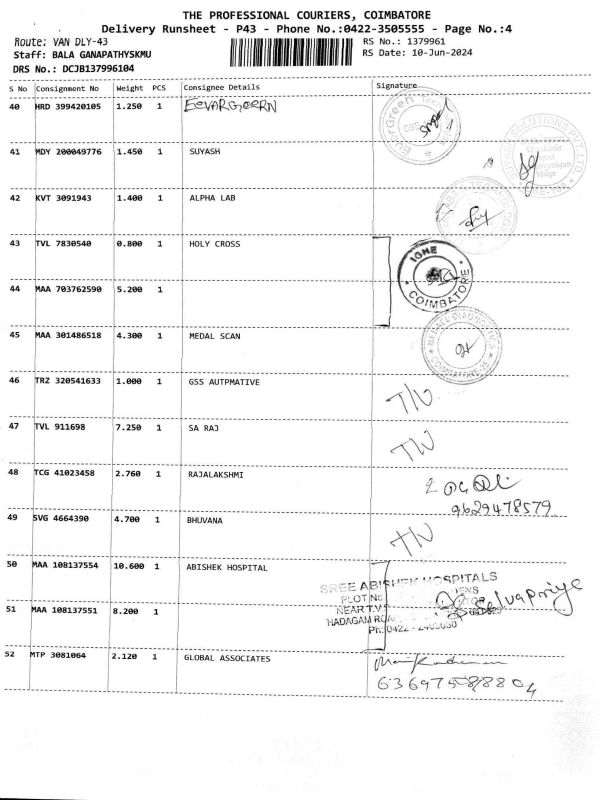 THE PROFESSIONAL COURIERS, COIMBATORE
Delivery Runsheet - P43 - Phone No.:0422-3505555 - Page No.:4
Route: VAN DLY-43
RS No.: 1379961
Staff: BALA GANAPATHYSKMU
RS Date: 10-Jun-2024
DRS No.: DCJB137996104
S No Consignment No Weight PCS Consignee Details Signature
40 HRD 399420105 1.250 1 EEVARGREERN
41 MDY 200049776 1.450 1 SUYASH
42 KVT 3091943 1.400 1 ALPHA LAB
43 TVL 7830540 0.800 1 HOLY CROSS
IGHE
COIMBATORE
44 MAA 703762590 5.200 1
45 MAA 301486518 4.300 1 MEDAL SCAN
46 TRZ 320541633 1.000 1 GSS AUTPMATIVE
47 TVL 911698 7.250 1 SA RAJ
48 TCG 41023458 2.760 1 RAJALAKSHMI
9629478579
49 SVG 4664390 4.700 1 BHUVANA
50 MAA 108137554 10.600 1 ABISHEK HOSPITAL
SREE ABISHEK HOSPITALS
PLOT No
NEAR T.V.S
Selvapriya
51 MAA 108137551 8.200 1
52 MTP 3081064 2.120 1 GLOBAL ASSOCIATES